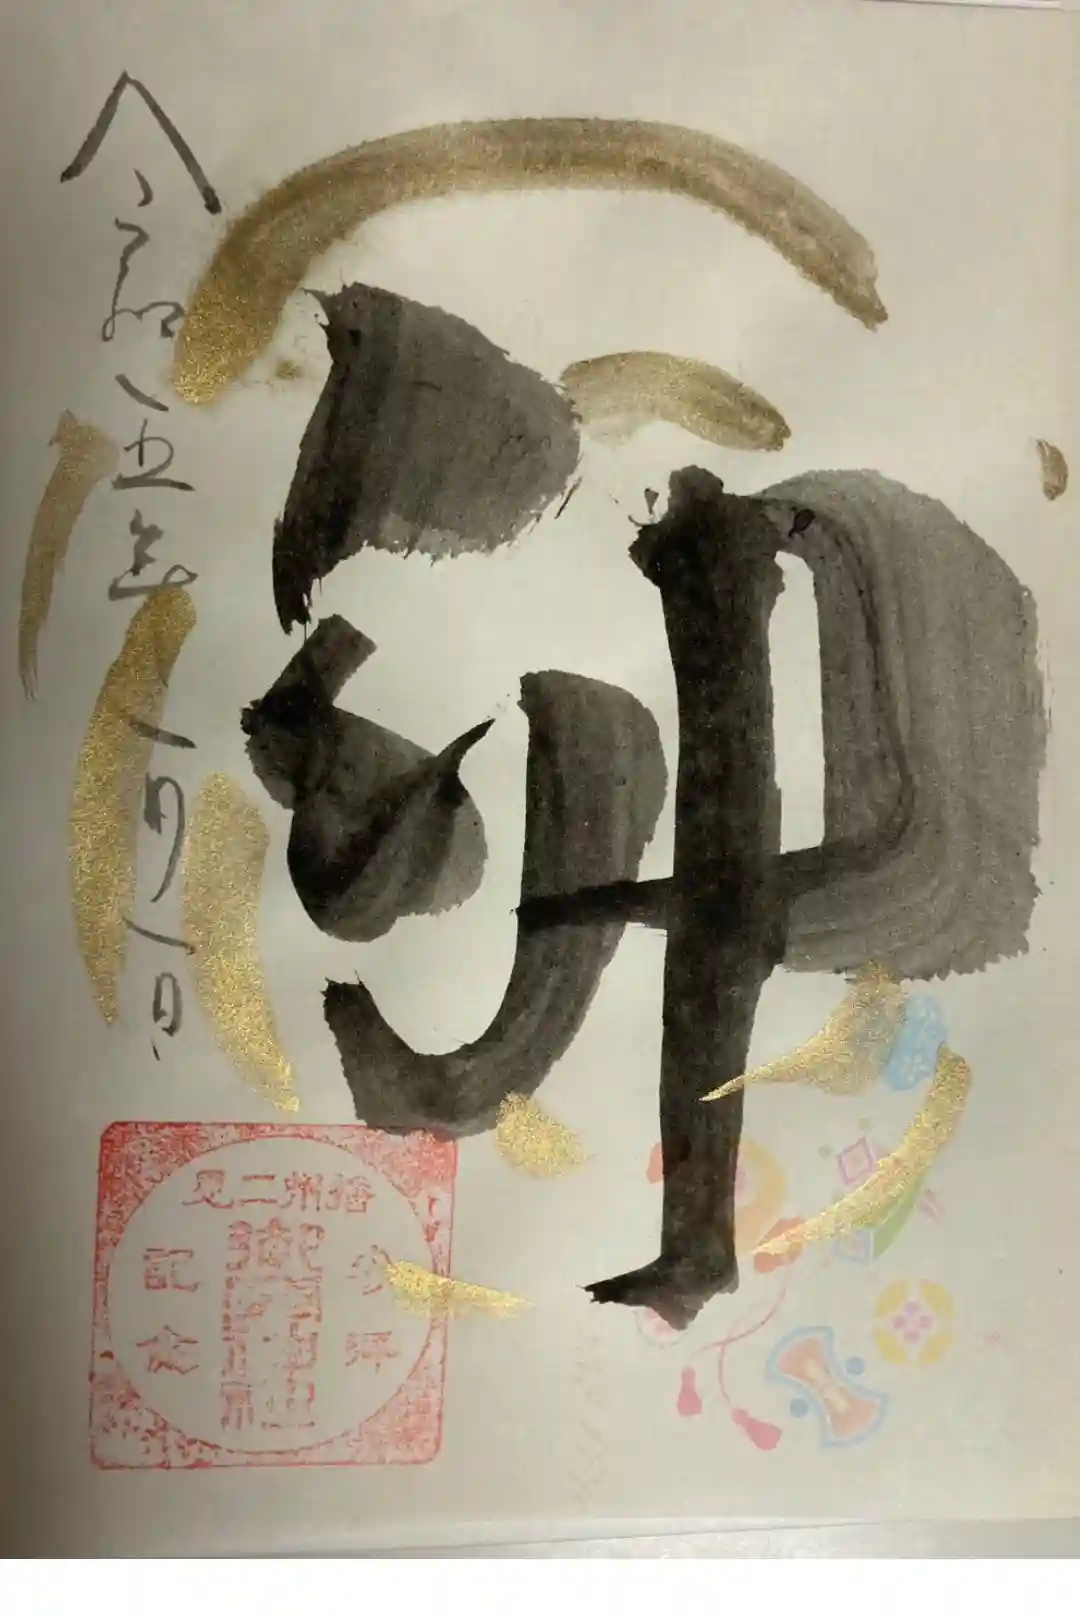 卯
令和五年一月一日
播州二見
参拝
記念